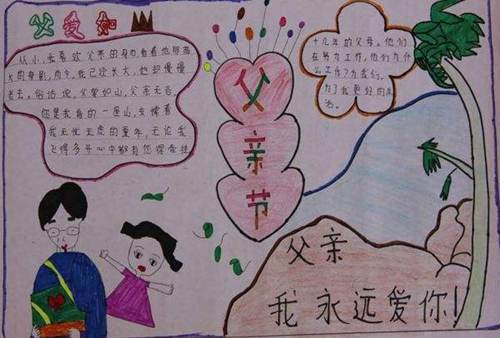 父爱如
从小,我喜欢父亲的身
大的身影,而今,我已经长大,他却慢慢
老去。俗话说,父爱如山,父亲无言
您是我身的一座山,支撑着
我无忧无虑的童年,无论我
飞得多
十几年的父母。他们
在努力工作,他们为什
么工作?为我们。
为了我更好的生
活。
父
亲
节
父亲
我永远爱你!